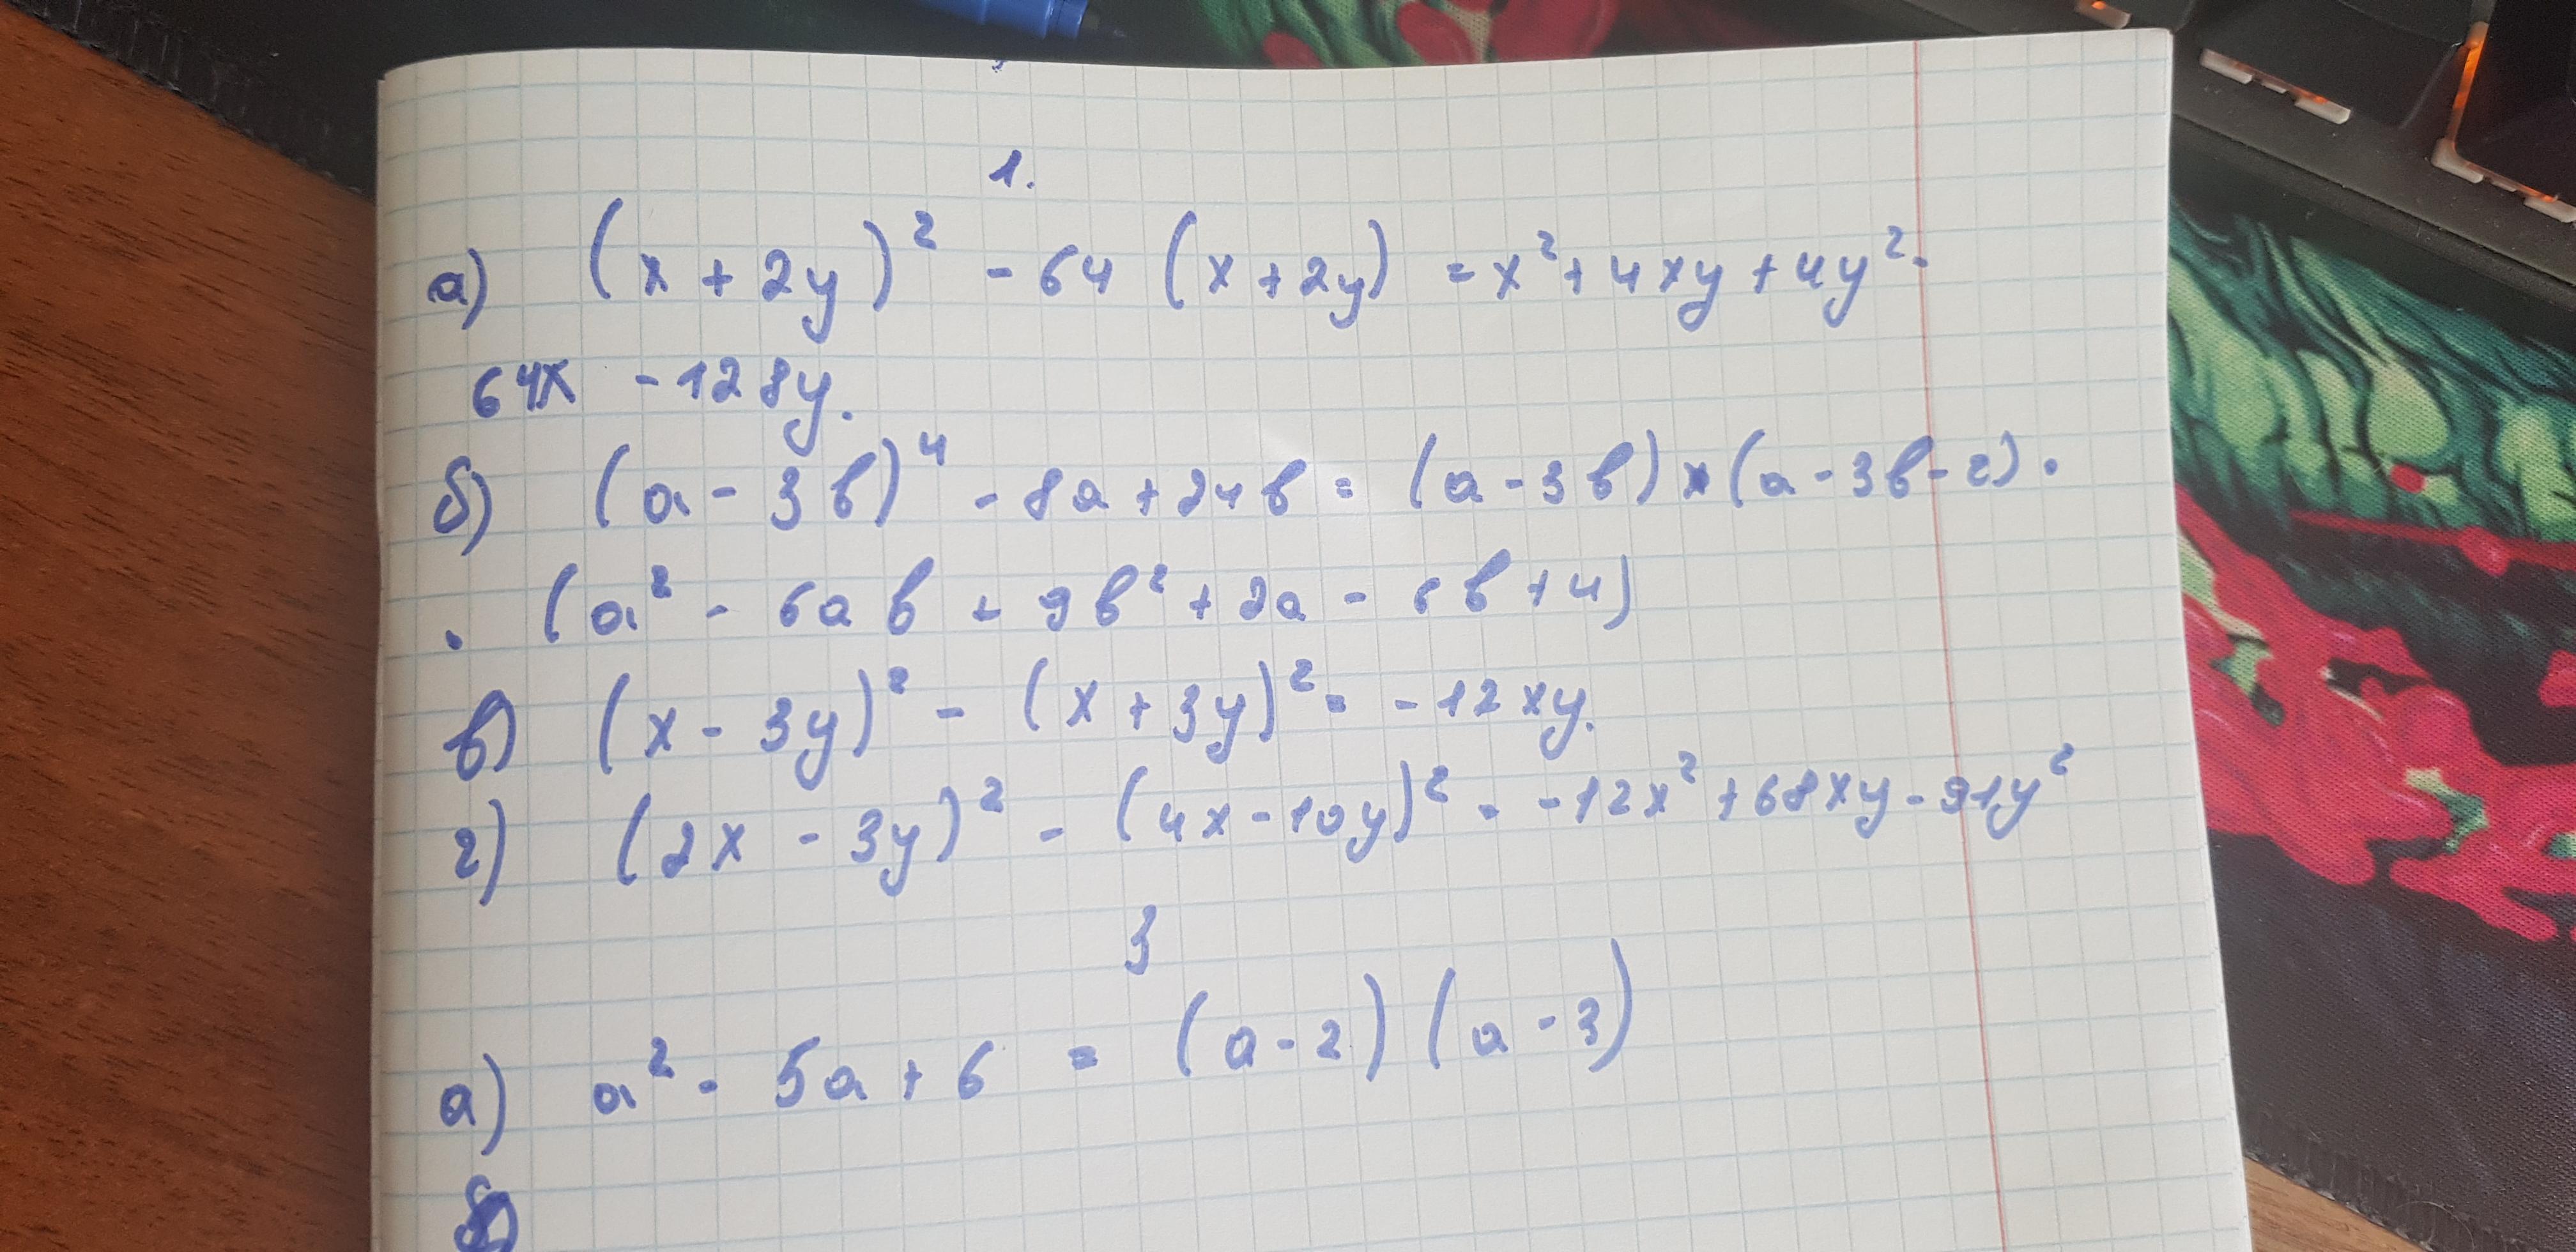 1.
а) (x + 2y)² - 64 (x + 2y) = x² + 4xy + 4y² -
64x - 128y.
б) (a - 3b)⁴ - 8a + 24b = (a - 3b) × (a - 3b - 2) ·
· (a² - 6ab + 9b² + 2a - 6b + 4)
в) (x - 3y)² - (x + 3y)² = - 12xy.
г) (2x - 3y)² - (4x - 10y)² = -12x² + 68xy - 91y²
3
а) a² - 5a + 6 = (a - 2) (a - 3)